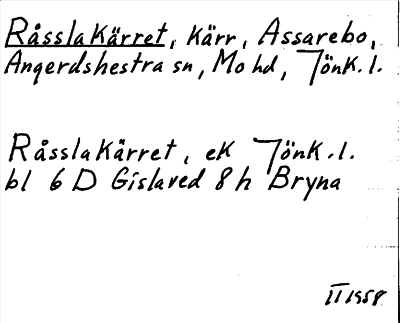 Råsslakärret, Kärr, Assarebo,
Angerdshestra sn, Mo hd, Jönk. l.
Råsslakärret, ek Jönk. l.
bl 6 D Gislaved 8 h Bryna
II 1958